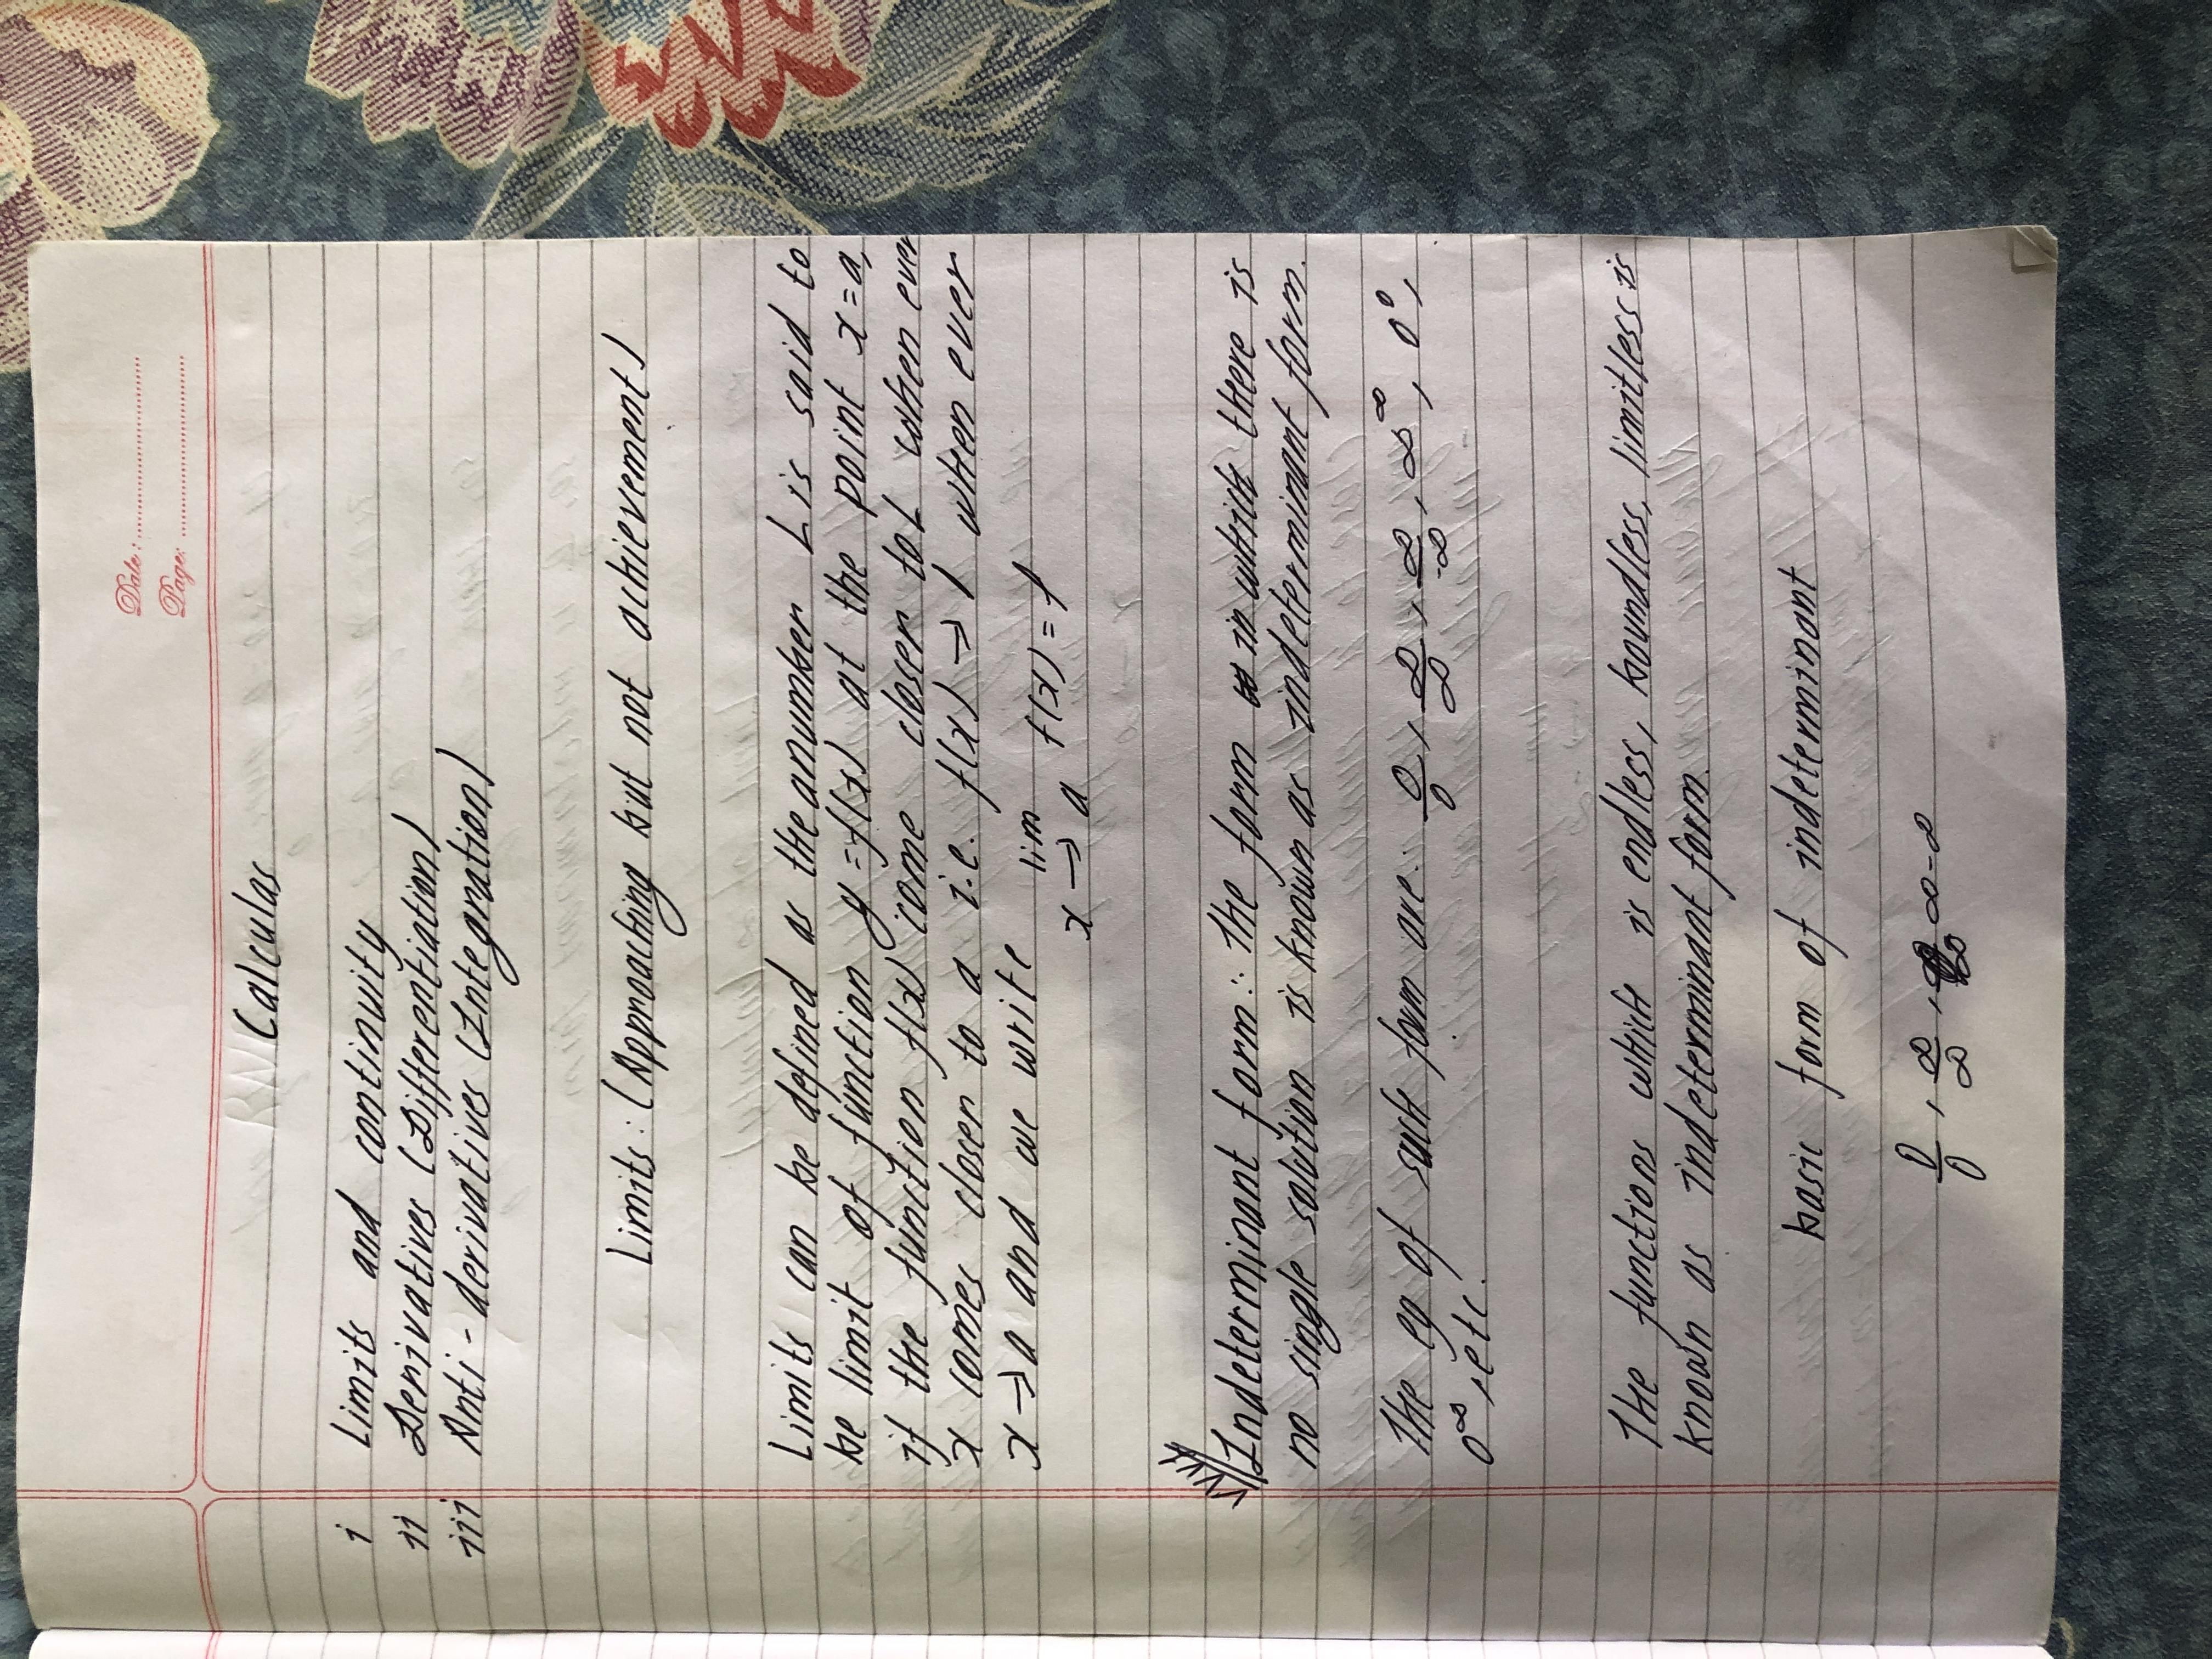 Date:
Page:
Calculas
i Limits and continuity
ii Derivatives (Differentiation)
iii Anti-derivatives (Integration)
Limits: (Approaching but not achievement)
Limits can be defined as the anumber L is said to
be limit of function y=f(x) at the point x=a,
if the function f(x) come closer to L when ever
x comes closer to a i.e. f(x) → l when ever
x → a and we write lim f(x) = l
x → a
Indeterminant form: The form in which there is
no single solution is known as indeterminant form.
The eg of such form are: 0/0, ∞/∞, ∞/-∞, ∞^∞, 0^0,
0^∞, etc.
The functions which is endless, boundless, limitless is
known as indeterminant form.
basic form of indeterminant
0/0, ∞/∞, ∞-∞